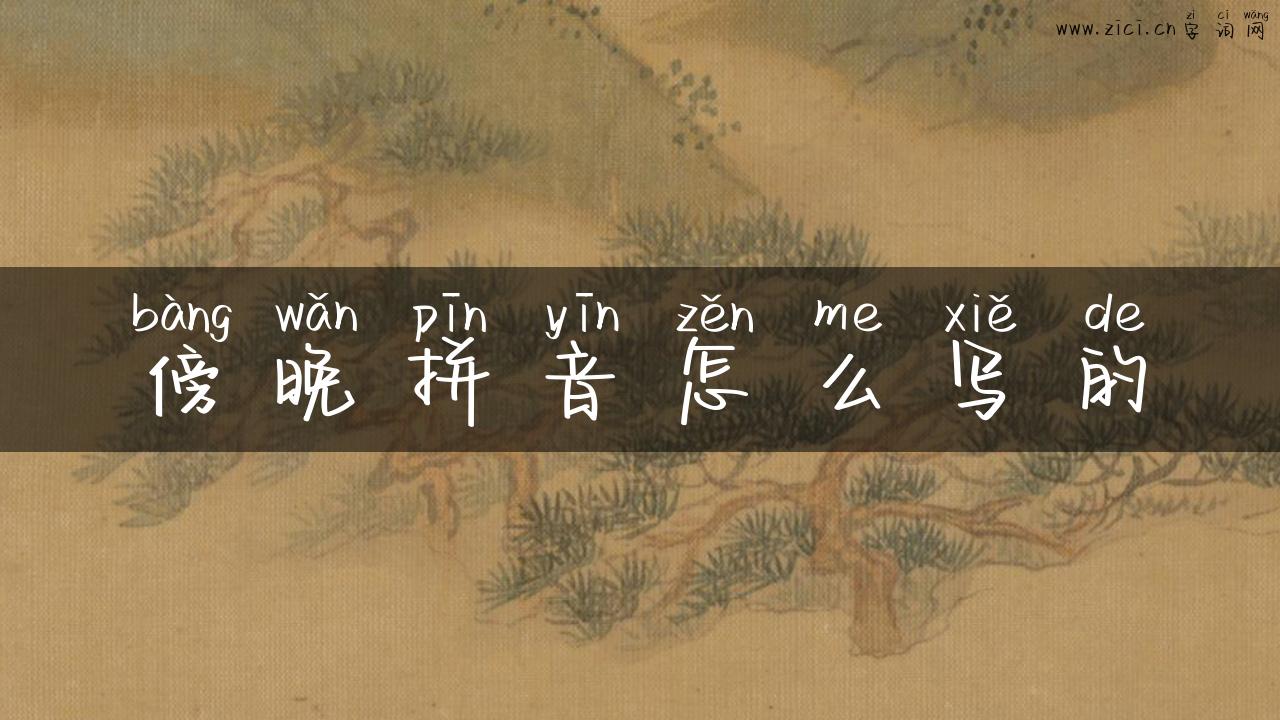 zì cí wǎng
www.zici.cn 字 词 网
bàng wǎn pīn yīn zěn me xiě de
傍 晚 拼 音 怎 么 写 的